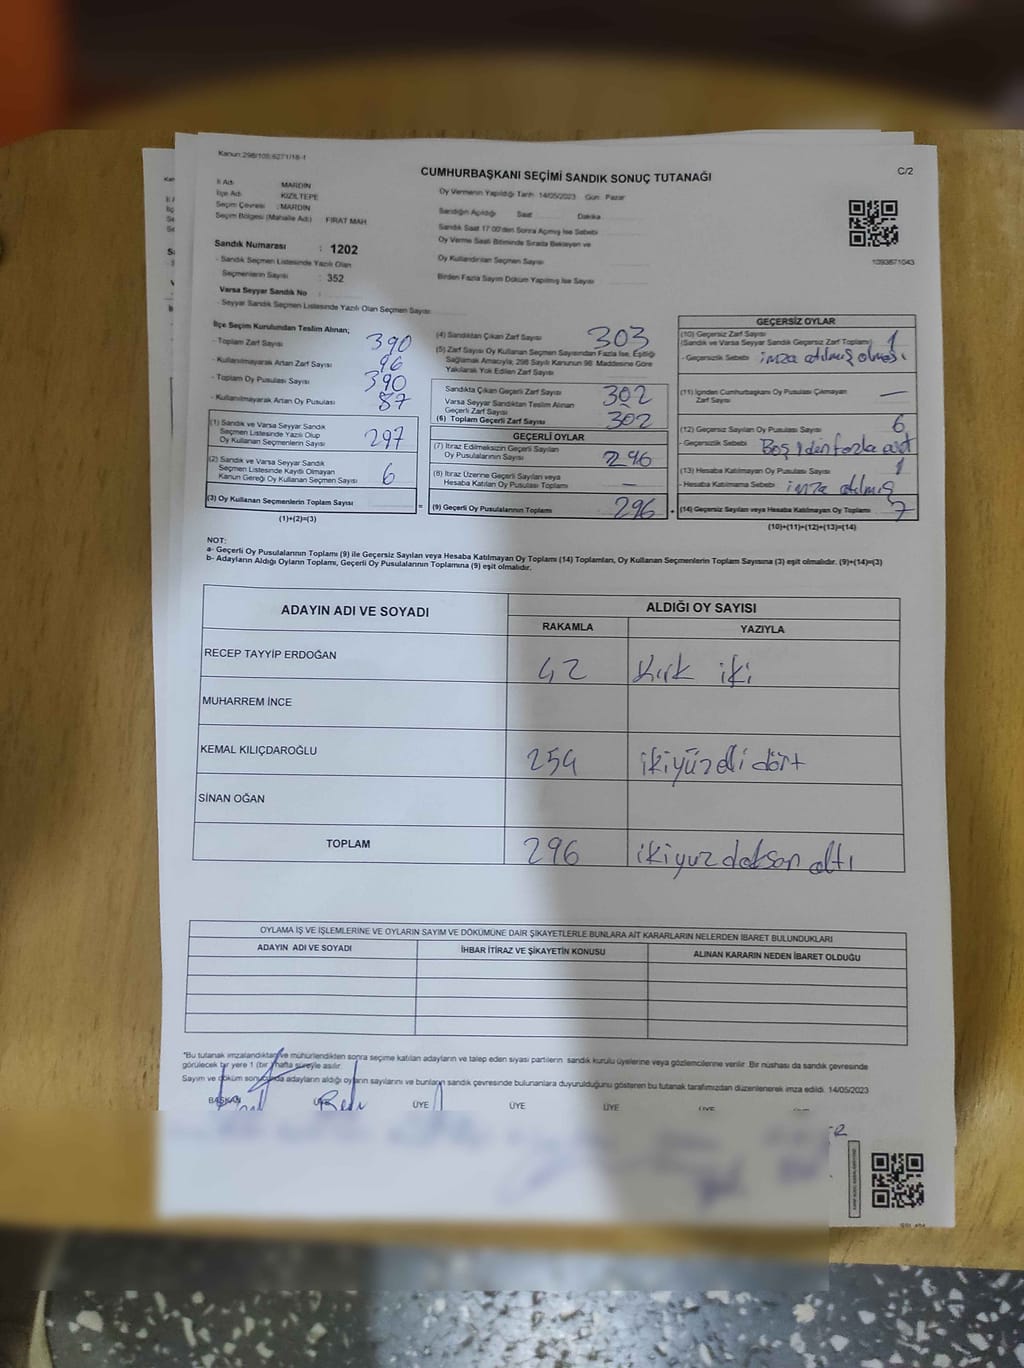 Kanun:298/105;6271/18-1
CUMHURBAŞKANI SEÇİMİ SANDIK SONUÇ TUTANAĞI
C/2
İl Adı : MARDİN
İlçe Adı : KIZILTEPE
Seçim Çevresi : MARDİN
Seçim Bölgesi (Mahalle Adı) FIRAT MAH
Sandık Numarası : 1202
- Sandık Seçmen Listesinde Yazılı Olan
Seçmenlerin Sayısı : 352
Varsa Seyyar Sandık No :
- Seyyar Sandık Seçmen Listesinde Yazılı Olan Seçmen Sayısı
Oy Vermenin Yapıldığı Tarih 14/05/2023 Gün: Pazar
Sandığın Açıldığı Saat Dakika
Sandık Saat 17:00'den Sonra Açımış İse Sebebi
Oy Verme Saati Bitiminde Sırada Bekleyen ve
Oy Kullandırılan Seçmen Sayısı
Birden Fazla Sayım Döküm Yapılmış İse Sayısı
1093871043
İlçe Seçim Kurulundan Teslim Alınan;
- Toplam Zarf Sayısı 390
- Kullanılmayarak Artan Zarf Sayısı 96
- Toplam Oy Pusulası Sayısı 390
- Kullanılmayarak Artan Oy Pusulası 87
(1) Sandık ve Varsa Seyyar Sandık
Seçmen Listesinde Yazılı Olup
Oy Kullanan Seçmenlerin Sayısı 297
(2) Sandık ve Varsa Seyyar Sandık
Seçmen Listesinde Kayıtlı Olmayan
Kanun Gereği Oy Kullanan Seçmen Sayısı 6
(3) Oy Kullanan Seçmenlerin Toplam Sayısı =
(1)+(2)=(3)
(4) Sandıktan Çıkan Zarf Sayısı 303
(5) Zarf Sayısı Oy Kullanan Seçmen Sayısından Fazla İse, Eşitliği
Sağlamak Amacıyla; 298 Sayılı Kanunun 98. Maddesine Göre
Yakılarak Yok Edilen Zarf Sayısı
Sandıkta Çıkan Geçerli Zarf Sayısı 302
Varsa Seyyar Sandıktan Teslim Alınan
Geçerli Zarf Sayısı
(6) Toplam Geçerli Zarf Sayısı 302
GEÇERLİ OYLAR
(7) İtiraz Edilmeksizin Geçerli Sayılan
Oy Pusulalarının Sayısı 296
(8) İtiraz Üzerine Geçerli Sayılan veya
Hesaba Katılan Oy Pusulası Toplamı —
(9) Geçerli Oy Pusulalarının Toplamı 296 +
GEÇERSİZ OYLAR
(10) Geçersiz Zarf Sayısı
(Sandık ve Varsa Seyyar Sandık Geçersiz Zarf Toplamı) 1
- Geçersizlik Sebebi imza atılmış olması
(11) İçinden Cumhurbaşkanı Oy Pusulası Çıkmayan
Zarf Sayısı —
(12) Geçersiz Sayılan Oy Pusulası Sayısı 6
- Geçersizlik Sebebi Boş 1den fazla
(13) Hesaba Katılmayan Oy Pusulası Sayısı 1
- Hesaba Katılmama Sebebi imza atılmış
(14) Geçersiz Sayılan veya Hesaba Katılmayan Oy Toplamı 7
(10)+(11)+(12)+(13)=(14)
NOT:
a- Geçerli Oy Pusulalarının Toplamı (9) ile Geçersiz Sayılan veya Hesaba Katılmayan Oy Toplamı (14) Toplamları, Oy Kullanan Seçmenlerin Toplam Sayısına (3) eşit olmalıdır. (9)+(14)=(3)
b- Adayların Aldığı Oyların Toplamı, Geçerli Oy Pusulalarının Toplamına (9) eşit olmalıdır.
ADAYIN ADI VE SOYADI ALDIĞI OY SAYISI
RAKAMLA YAZIYLA
RECEP TAYYİP ERDOĞAN 42 Kırk iki
MUHARREM İNCE
KEMAL KILIÇDAROĞLU 254 ikiyüz elli dört
SİNAN OĞAN
TOPLAM 296 ikiyüz doksan altı
OYLAMA İŞ VE İŞLEMLERİNE VE OYLARIN SAYIM VE DÖKÜMÜNE DAİR ŞİKAYETLERLE BUNLARA AİT KARARLARIN NELERDEN İBARET BULUNDUKLARI
ADAYIN ADI VE SOYADI İHBAR İTİRAZ VE ŞİKAYETİN KONUSU ALINAN KARARIN NEDEN İBARET OLDUĞU
*Bu tutanak imzalandıktan ve mühürlendikten sonra seçime katılan adayların ve talep eden siyasi partilerin sandık kurulu üyelerine veya gözlemcilerine verilir. Bir nüshası da sandık çevresinde
görülecek bir yere 1 (bir) hafta süreyle asılır.
Sayım ve döküm sonucunda adayların aldığı oyların sayılarını ve bunların sandık çevresinde bulunanlara duyurulduğunu gösteren bu tutanak tarafımızdan düzenlenerek imza edildi. 14/05/2023
BAŞKAN ÜYE ÜYE ÜYE ÜYE ÜYE